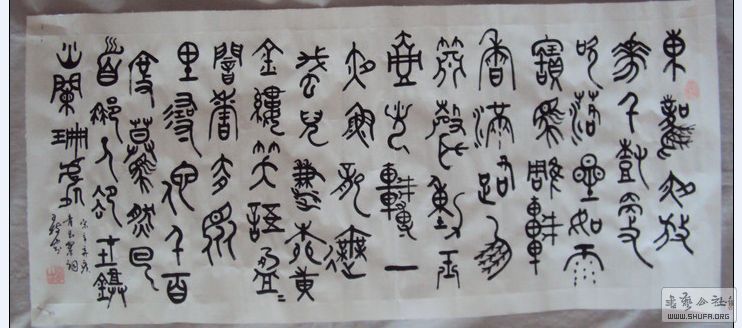 東風夜放
花千樹更
吹落星如雨
寶馬雕車
香滿路鳳
簫聲動玉
壺光轉一
夜魚龍舞
蛾兒雪柳黃
金縷笑語盈盈
暗香去眾
里尋他千百
度驀然回
首那人卻在燈
火闌珊處
青玉案詞
书艺公社
WWW.SHUFA.ORG